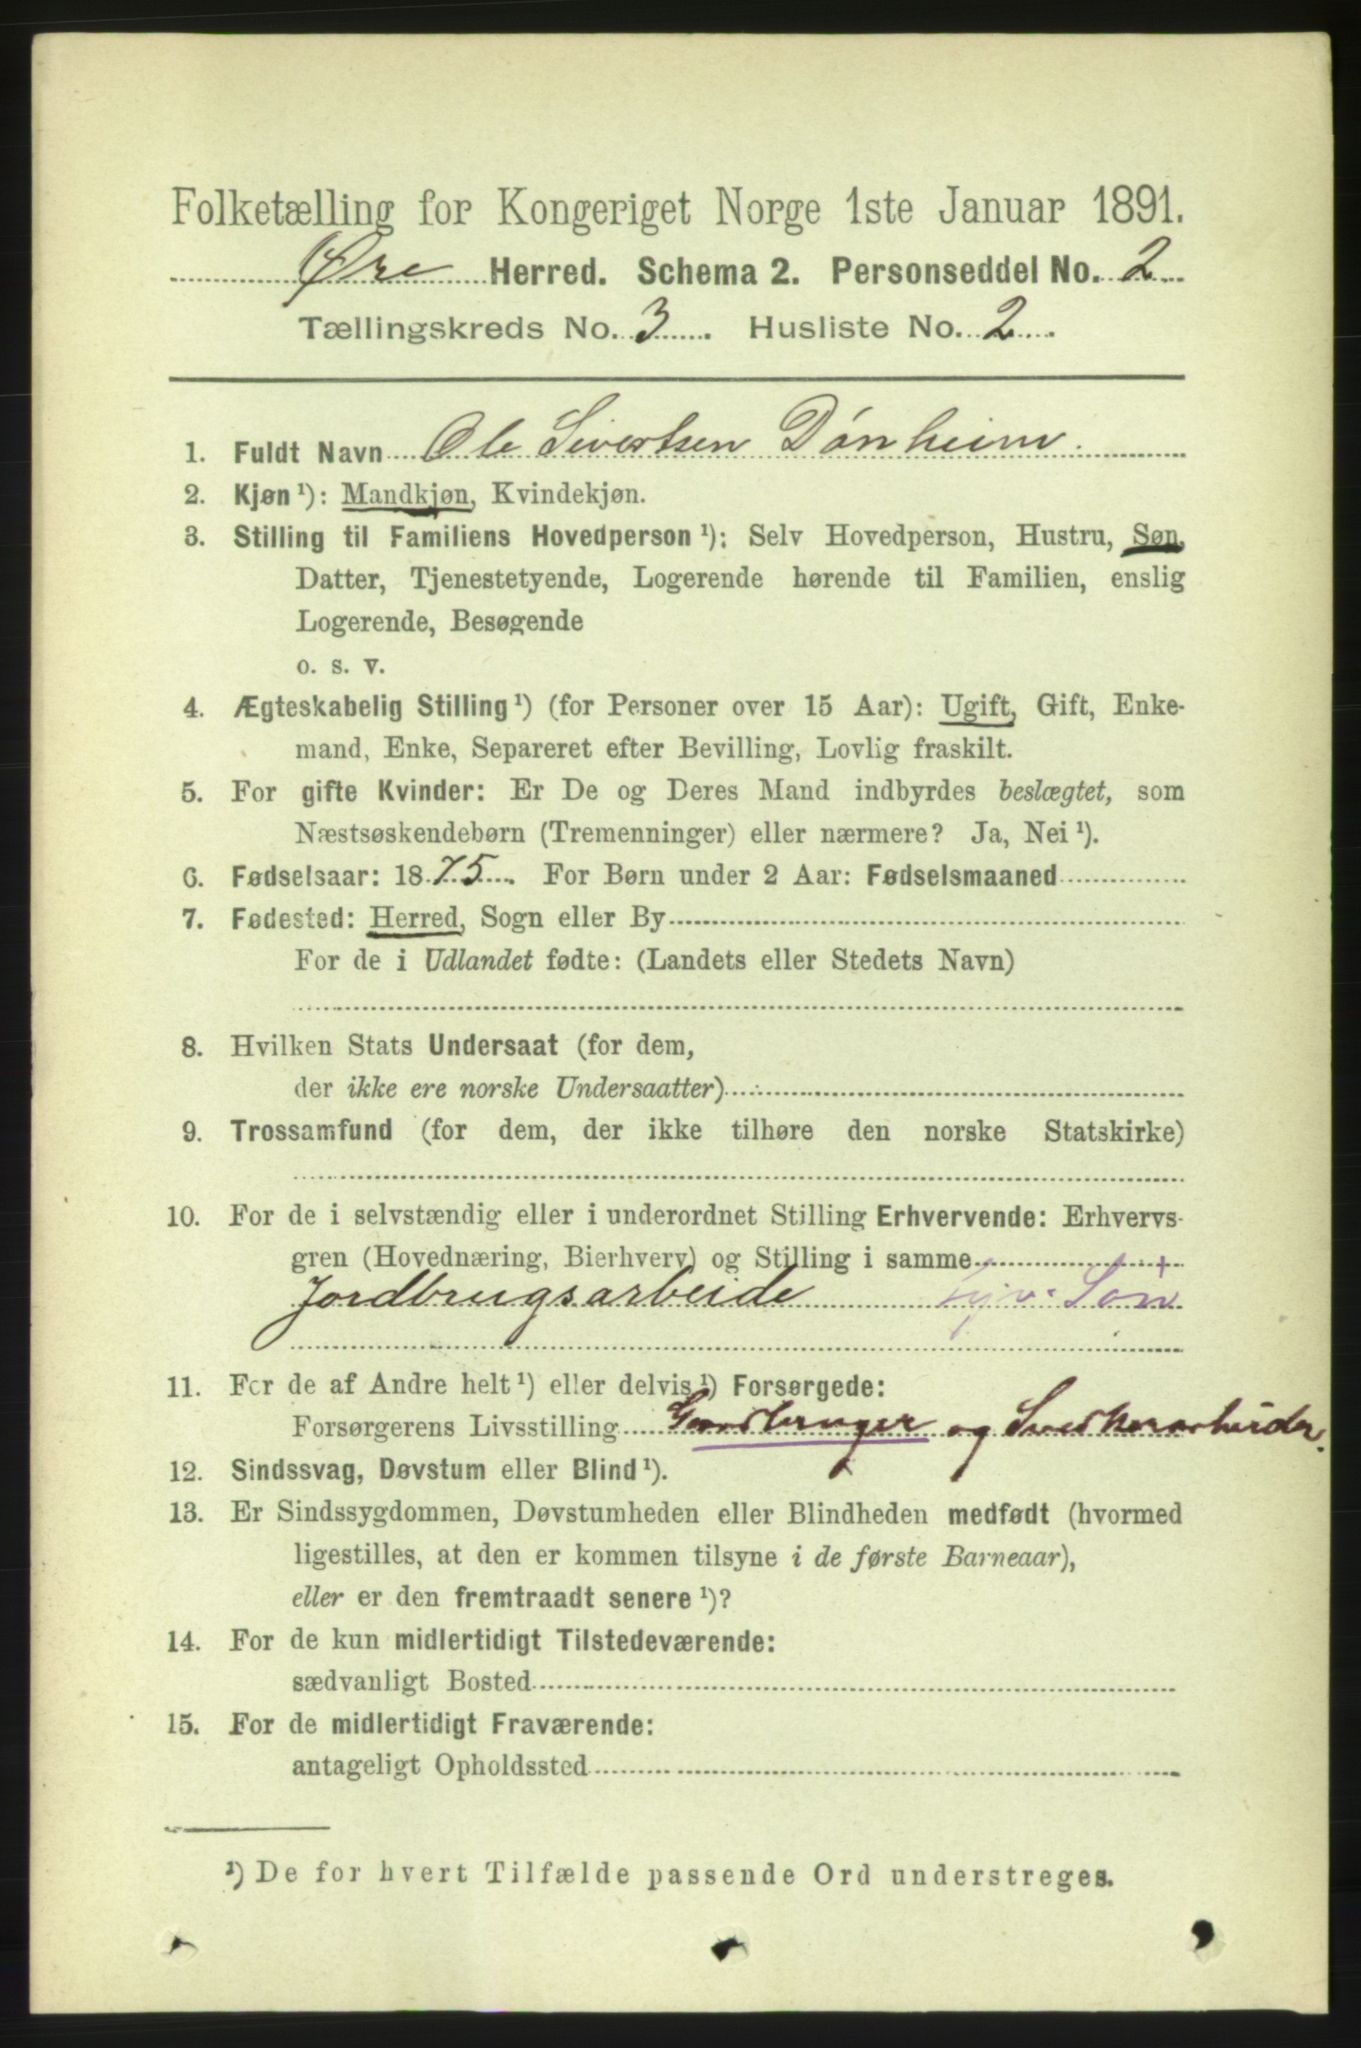 Folketælling for Kongeriget Norge 1ste Januar 1891.
Øre Herred. Schema 2. Personseddel No. 2
Tællingskreds No. 3. Husliste No. 2.
1. Fuldt Navn Ole Sivertsen Dónheim.
2. Kjøn ¹): Mandkjøn, Kvindekjøn.
3. Stilling til Familiens Hovedperson ¹): Selv Hovedperson, Hustru, Søn,
Datter, Tjenestetyende, Logerende hørende til Familien, enslig
Logerende, Besøgende
o. s. v.
4. Ægteskabelig Stilling ¹) (for Personer over 15 Aar): Ugift, Gift, Enke-
mand, Enke, Separeret efter Bevilling, Lovlig fraskilt.
5. For gifte Kvinder: Er De og Deres Mand indbyrdes beslægtet, som
Næstsøskendebørn (Tremenninger) eller nærmere? Ja, Nei ¹).
6. Fødselsaar: 1875. For Børn under 2 Aar: Fødselsmaaned
7. Fødested: Herred, Sogn eller By
For de i Udlandet fødte: (Landets eller Stedets Navn)
8. Hvilken Stats Undersaat (for dem,
der ikke ere norske Undersaatter)
9. Trossamfund (for dem, der ikke tilhøre den norske Statskirke)
10. For de i selvstændig eller i underordnet Stilling Erhvervende: Erhvervs-
gren (Hovednæring, Bierhverv) og Stilling i samme
Jordbrugsarbeide Són
11. For de af Andre helt ¹) eller delvis ¹) Forsørgede:
Forsørgerens Livsstilling Gaardbruger og Snedkerarbeider.
12. Sindssvag, Døvstum eller Blind ¹).
13. Er Sindssygdommen, Døvstumheden eller Blindheden medfødt (hvormed
ligestilles, at den er kommen tilsyne i de første Barneaar),
eller er den fremtraadt senere ¹)?
14. For de kun midlertidigt Tilstedeværende:
sædvanligt Bosted
15. For de midlertidigt Fraværende:
antageligt Opholdssted
¹) De for hvert Tilfælde passende Ord understreges.